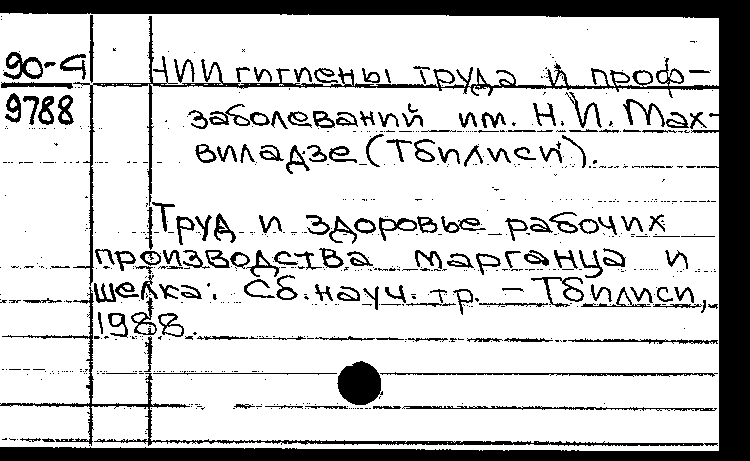 90-4 НИИ гигиены труда и проф-
9788 заболеваний им. Н.И. Мах-
виладзе (Тбилиси).
Труд и здоровье рабочих
производства марганца и
шелка: Сб. науч. тр. – Тбилиси,
1988.